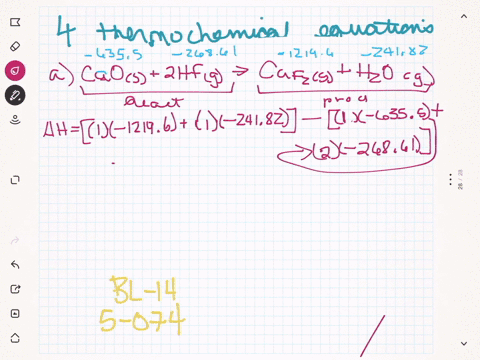 4 thermochemical equations
-635.5 -268.61 -1219.6 -241.82
a) CaO(s) + 2HF(g) → CaF2(s) + H2O (g)
react prod
ΔH = [(1)(-1219.6) + (1)(-241.82)] - [(1)(-635.5) +
(2)(-268.61)]
BL-14
5-074
26 / 28